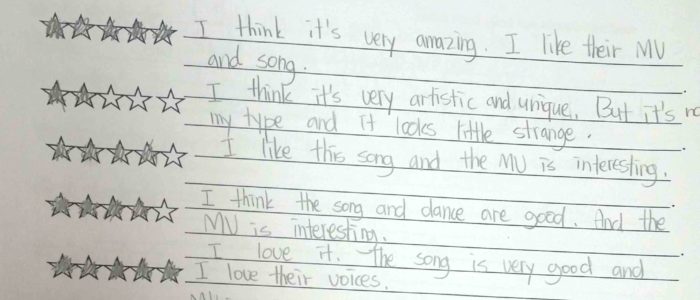 I think it's very amazing. I like their MV
and song.
I think it's very artistic and unique. But it's
my type and it looks little strange.
I like this song and the MV is interesting.
I think the song and dance are good. And the
MV is interesting.
I love it. The song is very good and
I love their voices.